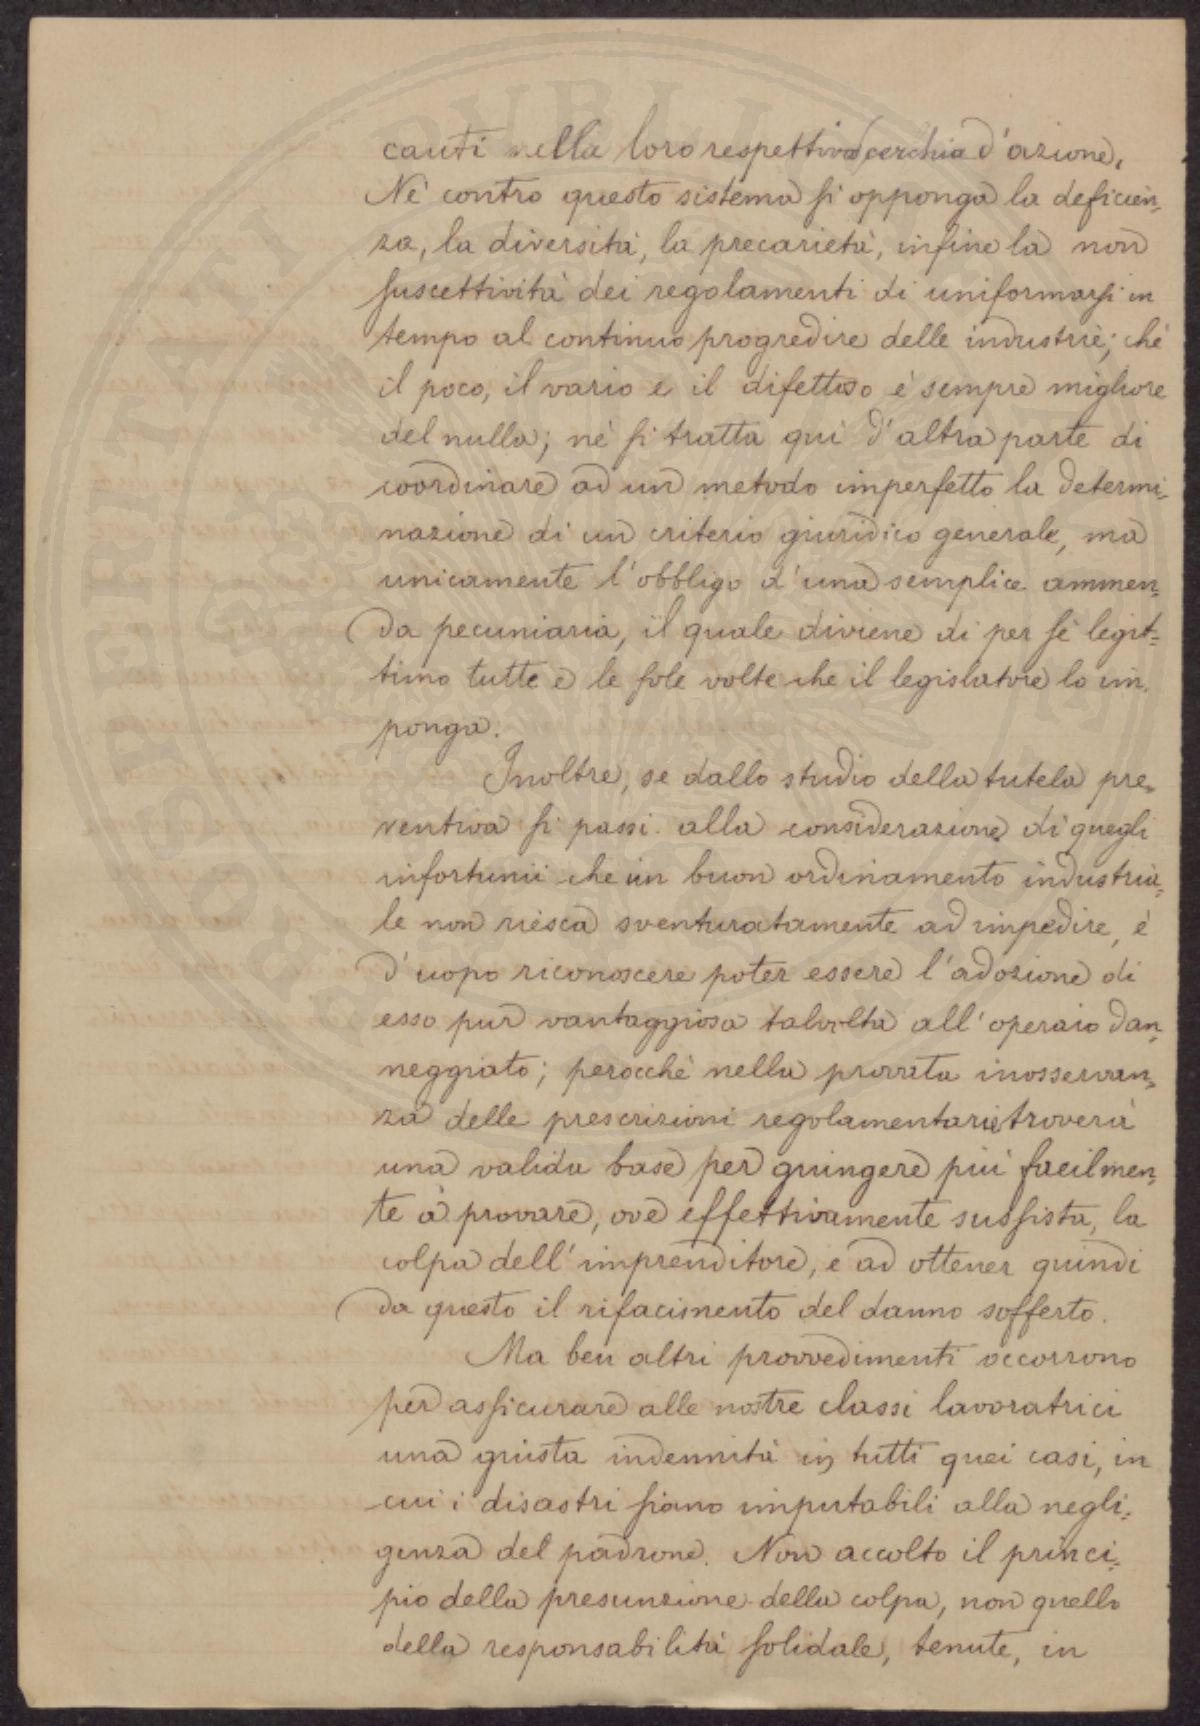 cauti nella loro respettiva cerchia d'azione.
Nè contro questo sistema si opponga la deficien-
za, la diversità, la precarietà, infine la non
suscettività dei regolamenti di uniformarsi in
tempo al continuo progredire delle industrie; chè
il poco, il vario e il difettoso è sempre migliore
del nulla; nè si tratta qui d'altra parte di
coordinare ad un metodo imperfetto la determi-
nazione di un criterio giuridico generale, ma
unicamente l'obbligo d'una semplice ammen-
da pecuniaria, il quale diviene di per sè legit-
timo tutte e le sole volte che il legislatore lo im-
ponga.
Inoltre, se dallo studio della tutela pre-
ventiva si passi alla considerazione di quegli
infortunii che un buon ordinamento industria-
le non riesca sventuratamente ad impedire, è
d'uopo riconoscere poter essere l'adozione di
esso pur vantaggiosa talvolta all'operaio dan-
neggiato; perocchè nella provata inosservan-
za delle prescrizioni regolamentarie troverà
una valida base per giungere più facilmen-
te a provare, ove effettivamente sussista, la
colpa dell'imprenditore, e ad ottener quindi
da questo il rifacimento del danno sofferto.
Ma ben altri provvedimenti occorrono
per assicurare alle nostre classi lavoratrici
una giusta indennità in tutti quei casi, in
cui i disastri siano imputabili alla negli-
genza del padrone. Non accolto il princi-
pio della presunzione della colpa, non quello
della responsabilità solidale, tenute, in